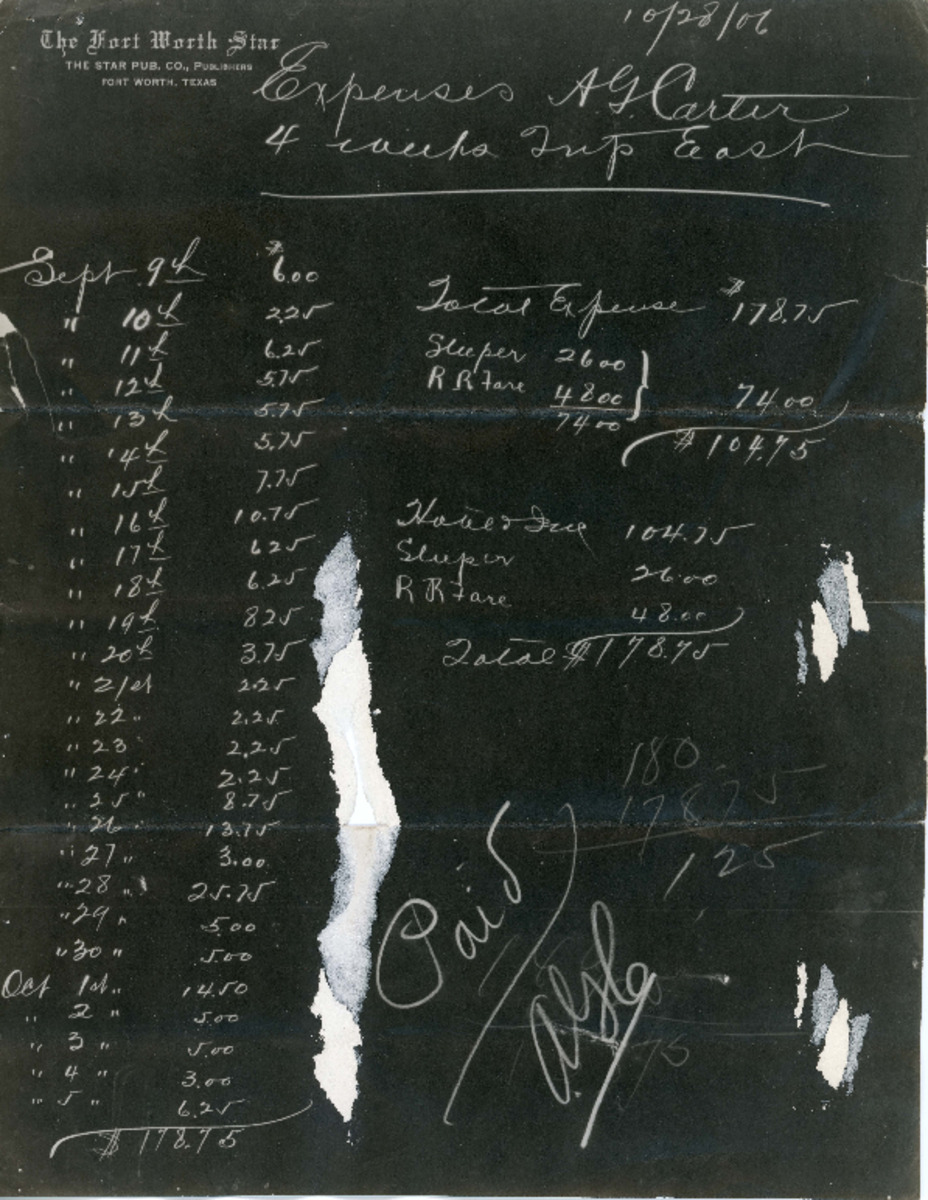 The Fort Worth Star
THE STAR PUB. CO., PUBLISHERS
FORT WORTH, TEXAS
10/28/06
Expenses A.G. Carter
4 weeks Trip East
Sept 9th $6.00
" 10th 2.25
" 11th 6.25
" 12th 5.75
" 13th 5.75
" 14th 5.75
" 15th 7.75
" 16th 10.75
" 17th 6.25
" 18th 6.25
" 19th 8.25
" 20th 3.75
" 21st 2.25
" 22 " 2.25
" 23 " 2.25
" 24 " 2.25
" 25 " 8.75
" 26 " 13.75
" 27 " 3.00
" 28 " 25.75
" 29 " 5.00
" 30 " 5.00
Oct 1st " 14.50
" 2 " 5.00
" 3 " 5.00
" 4 " 3.00
" 5 " 6.25
$178.75
Total Expense $178.75
Sleeper 26 00
R R Fare 48 00 74 00
74 00
$104.75
Hotel & Inc 104.75
Sleeper 26.00
R R Fare 48.00
Total $178.75
180
178 75
1 25
Paid